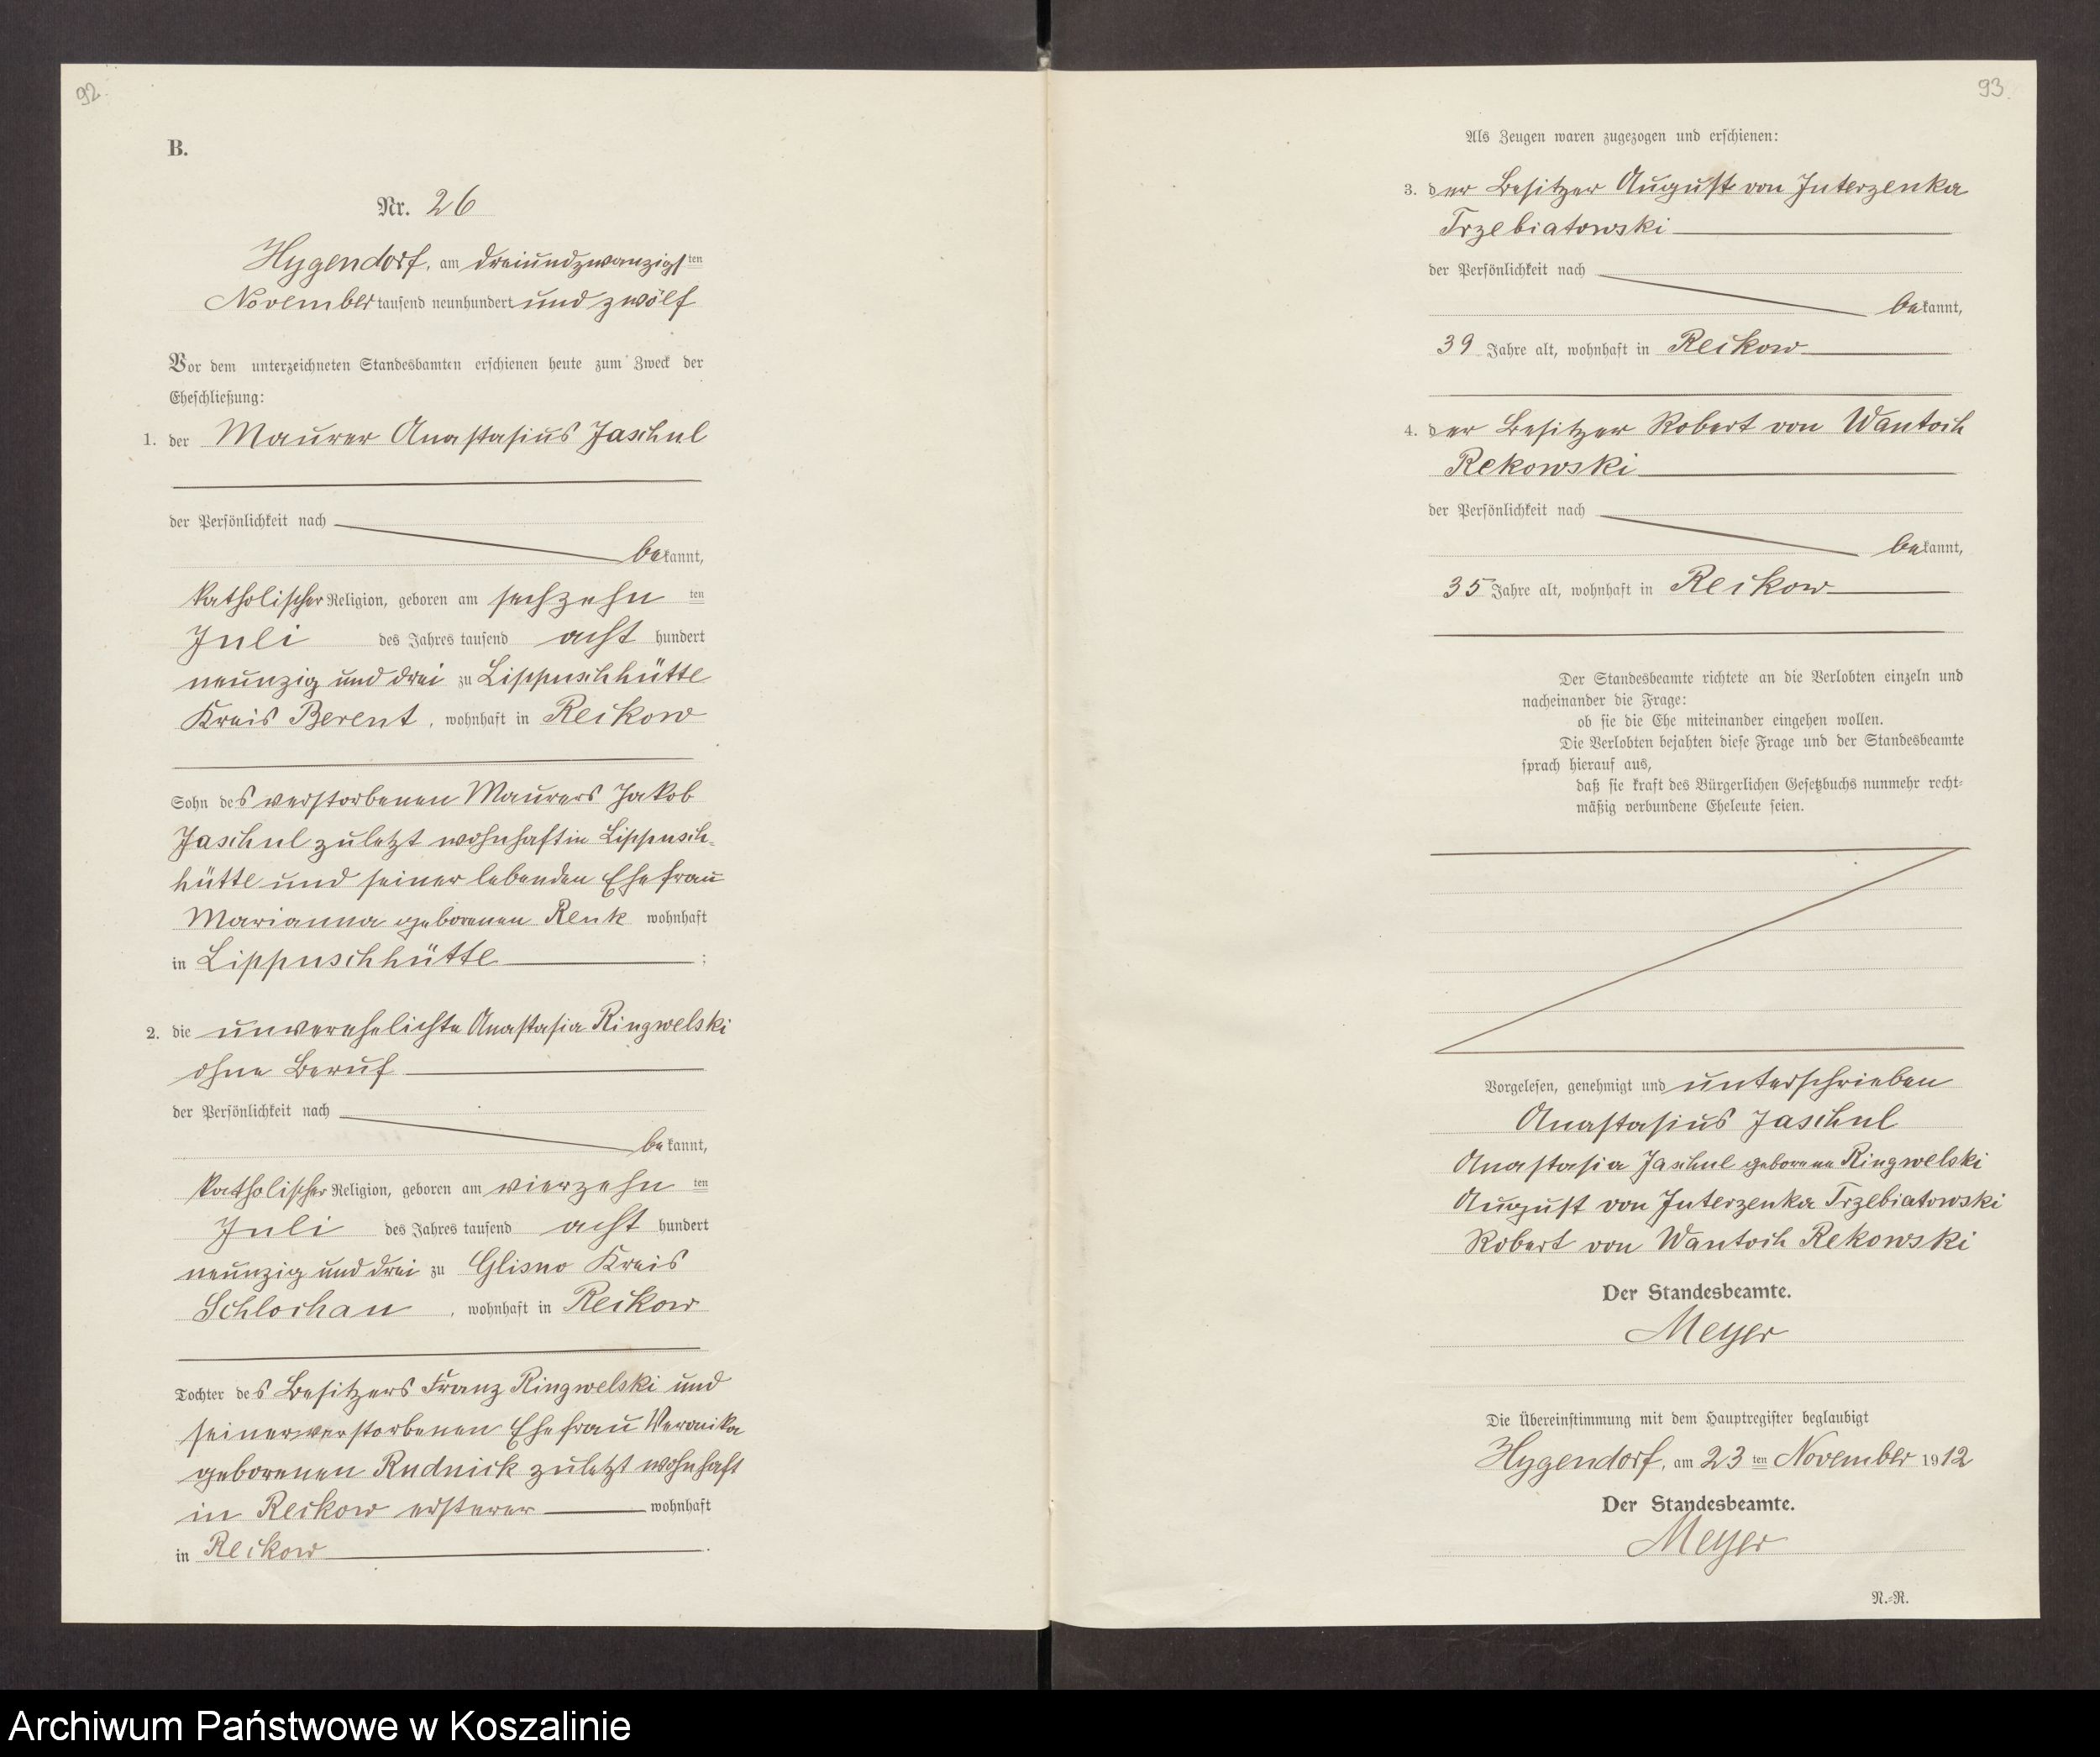 92.
B.
Nr. 26
Hygendorf, am dreiundzwanzigsten
November tausend neunhundert und zwölf
Vor dem unterzeichneten Standesbamten erschienen heute zum Zweck der
Eheschließung:
1. der Maurer Anastasius Jaschul
der Persönlichkeit nach
bekannt,
katholischer Religion, geboren am sechzehn ten
Juli des Jahres tausend acht hundert
neunzig und drei zu Lippuschhütte
Kreis Berent, wohnhaft in Reckow
Sohn des verstorbenen Maurers Jakob
Jaschul zuletzt wohnhaft in Lippusch-
hütte und seiner lebenden Ehefrau
Marianna geborenen Renk wohnhaft
in Lippuschhütte ;
2. die unverehelichte Anastasia Ringwelski
ohne Beruf
der Persönlichkeit nach
bekannt,
katholischer Religion, geboren am vierzehn ten
Juli des Jahres tausend acht hundert
neunzig und drei zu Glisno Kreis
Schlochau, wohnhaft in Reckow
Tochter des Besitzers Franz Ringwelski und
seiner verstorbenen Ehefrau Veronika
geborenen Rudnick zuletzt wohnhaft
in Reckow ersterer wohnhaft
in Reckow.
93.
Als Zeugen waren zugezogen und erschienen:
3. der Besitzer August von Juterzenka
Trzebiatowski
der Persönlichkeit nach
bekannt,
39 Jahre alt, wohnhaft in Reckow
4. der Besitzer Robert von Wantoch
Rekowski
der Persönlichkeit nach
bekannt,
35 Jahre alt, wohnhaft in Reckow
Der Standesbeamte richtete an die Verlobten einzeln und
nacheinander die Frage:
ob sie die Ehe miteinander eingehen wollen.
Die Verlobten bejahten diese Frage und der Standesbeamte
sprach hierauf aus,
daß sie kraft des Bürgerlichen Gesetzbuchs nunmehr recht-
mäßig verbundene Eheleute seien.
Vorgelesen, genehmigt und unterschrieben
Anastasius Jaschul
Anastasia Jaschul geborene Ringwelski
August von Juterzenka Trzebiatowski
Robert von Wantoch Rekowski
Der Standesbeamte.
Meyer
Die Übereinstimmung mit dem Hauptregister beglaubigt
Hygendorf, am 23 ten November 1912
Der Standesbeamte.
Meyer
N.-R.
Archiwum Państwowe w Koszalinie